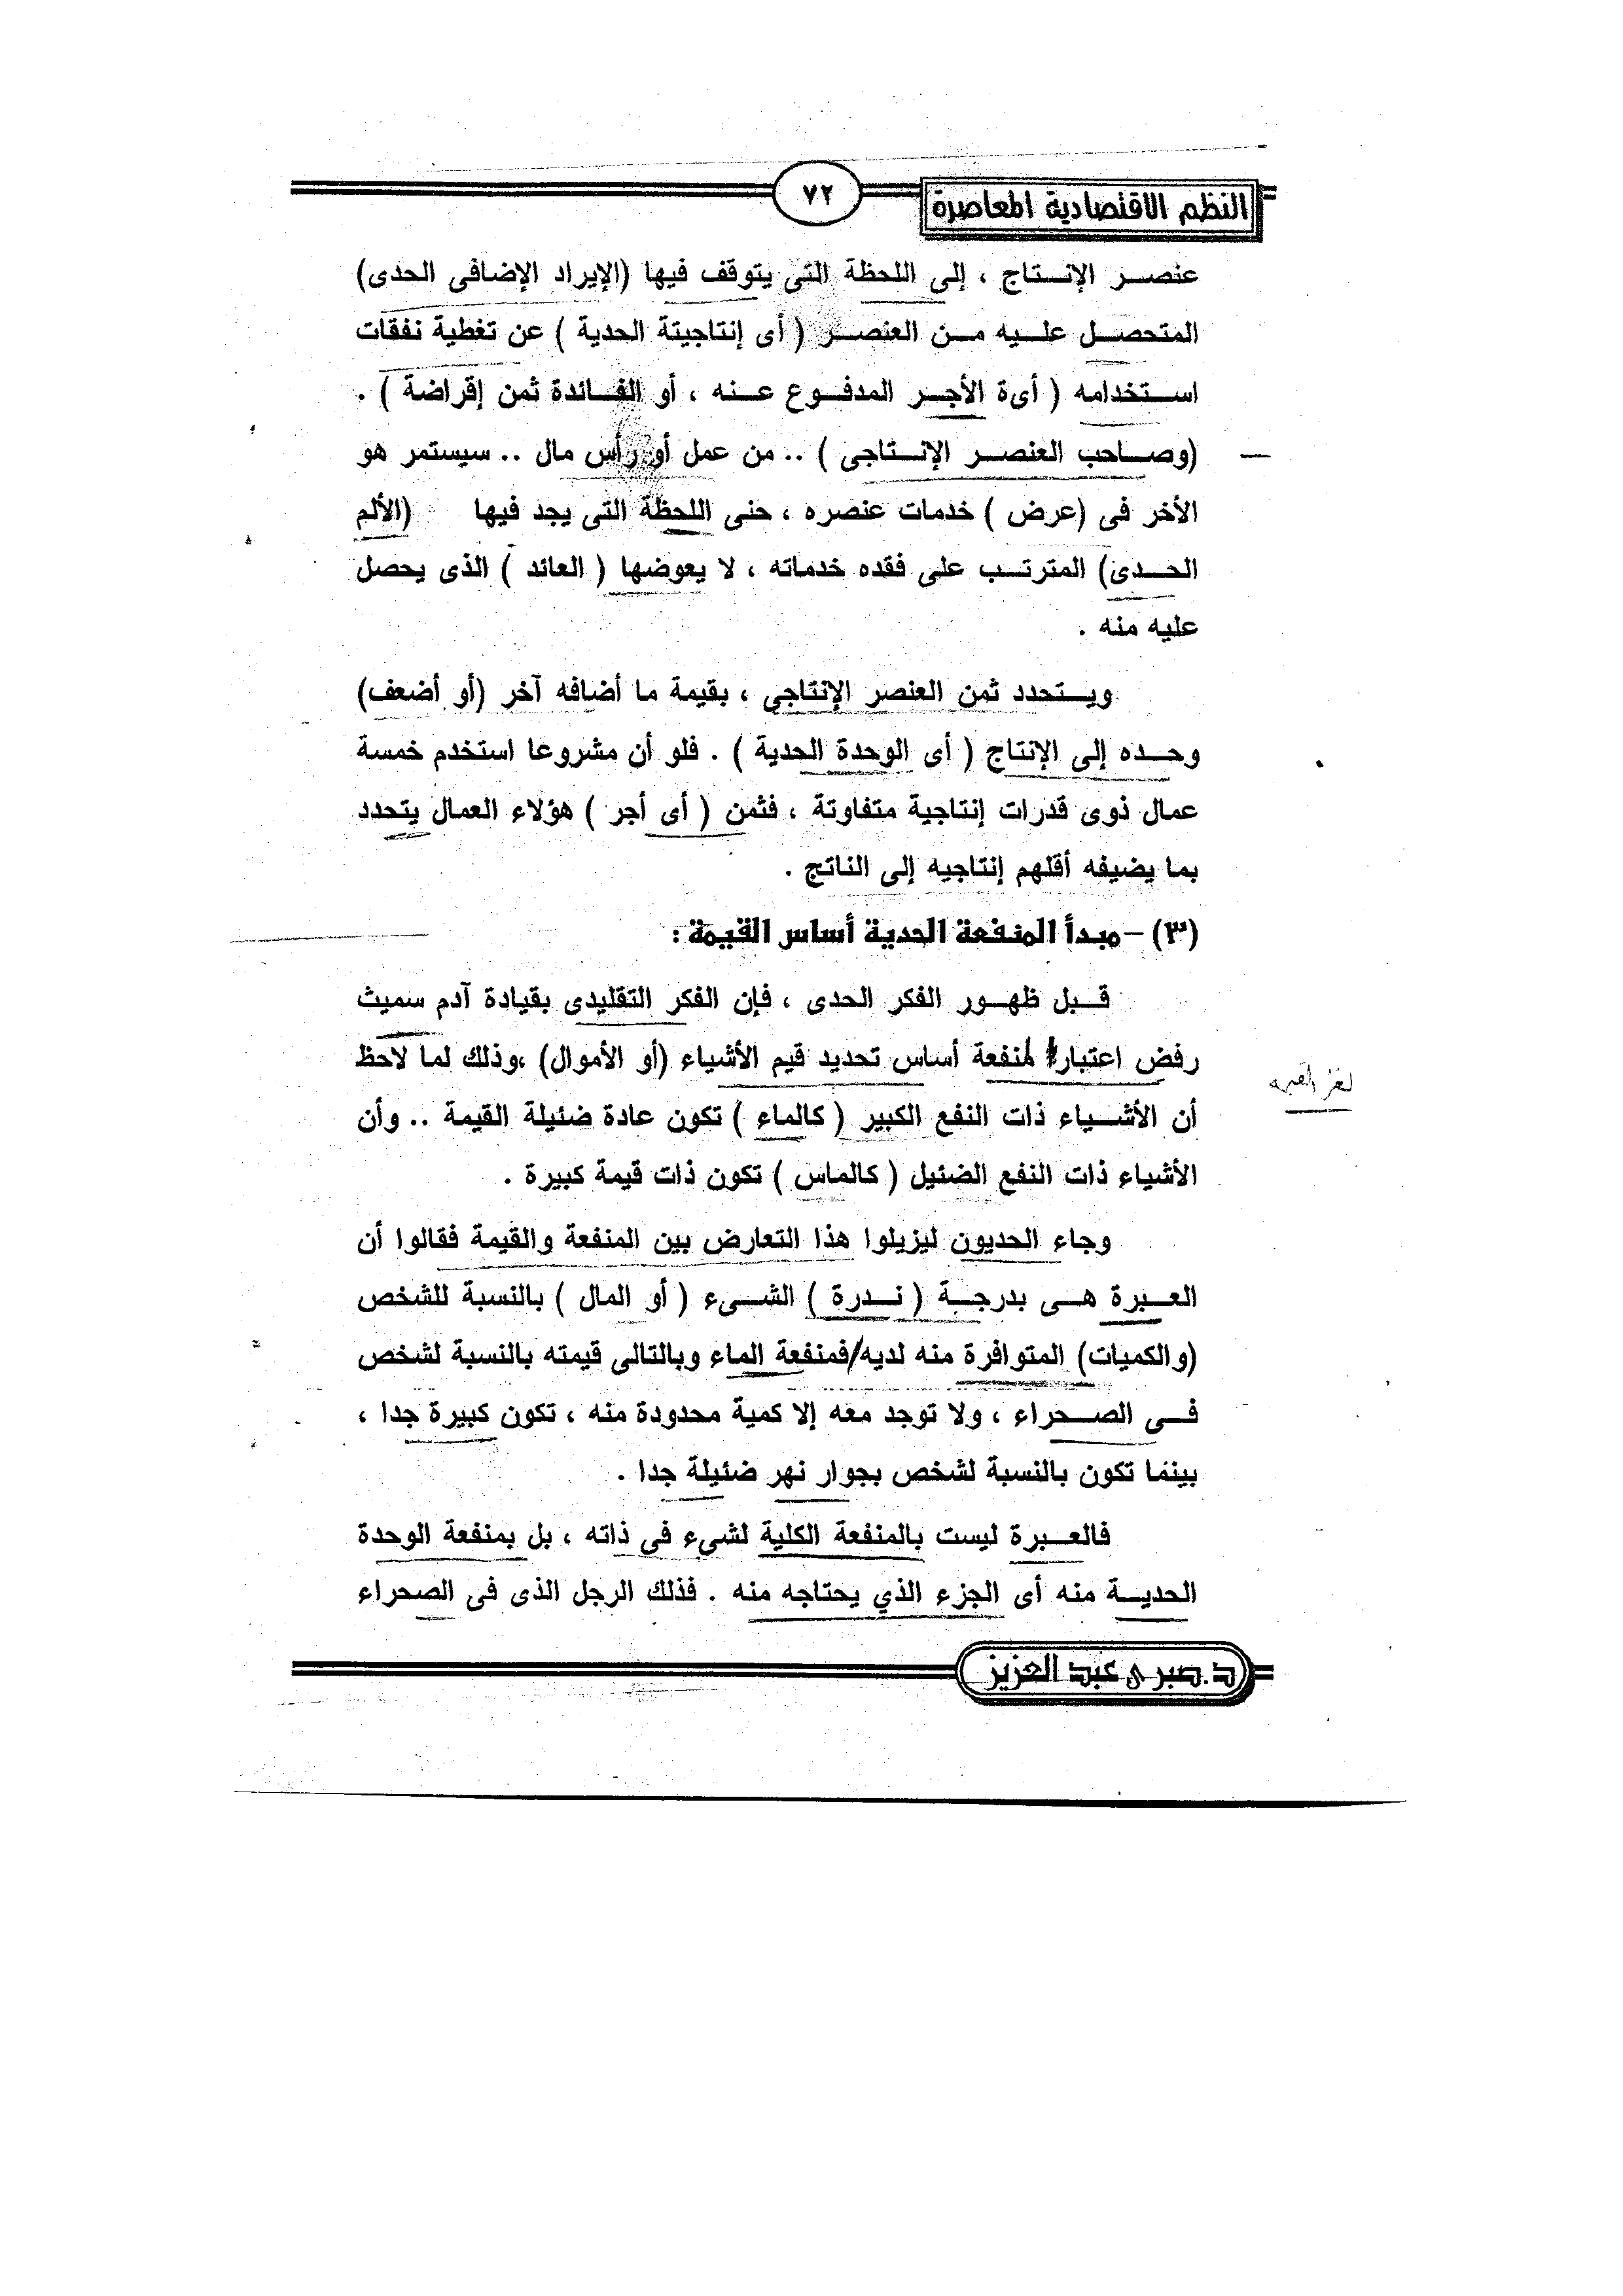 النظم الاقتصادية المعاصرة
٧٢
عنصر الإنتاج ، إلى اللحظة التى يتوقف فيها (الإيراد الإضافى الحدى)
المتحصل عليه من العنصر ( أى إنتاجيتة الحدية ) عن تغطية نفقات
استخدامه ( أىة الأجر المدفوع عنه ، أو الفائدة ثمن إقراضة ) .
(وصاحب العنصر الإنتاجى ) .. من عمل أو رأس مال .. سيستمر هو
الأخر فى (عرض ) خدمات عنصره ، حنى اللحظة التى يجد فيها (الألم
الحدى) المترتب على فقده خدماته ، لا يعوضها ( العائد ) الذى يحصل
عليه منه .
ويتحدد ثمن العنصر الإنتاجي ، بقيمة ما أضافه آخر (أو أضعف)
وحده إلى الإنتاج ( أى الوحدة الحدية ) . فلو أن مشروعا استخدم خمسة
عمال ذوى قدرات إنتاجية متفاوتة ، فثمن ( أى أجر ) هؤلاء العمال يتحدد
بما يضيفه أقلهم إنتاجيه إلى الناتج .
(٣) – مبدأ المنفعة الحدية أساس القيمة :
قبل ظهور الفكر الحدى ، فإن الفكر التقليدى بقيادة آدم سميث
رفض اعتبار المنفعة أساس تحديد قيم الأشياء (أو الأموال) ،وذلك لما لاحظ
لغز القيمة
أن الأشياء ذات النفع الكبير ( كالماء ) تكون عادة ضئيلة القيمة .. وأن
الأشياء ذات النفع الضئيل ( كالماس ) تكون ذات قيمة كبيرة .
وجاء الحديون ليزيلوا هذا التعارض بين المنفعة والقيمة فقالوا أن
العبرة هى بدرجة ( ندرة ) الشىء ( أو المال ) بالنسبة للشخص
(والكميات) المتوافرة منه لديه/فمنفعة الماء وبالتالى قيمته بالنسبة لشخص
فى الصحراء ، ولا توجد معه إلا كمية محدودة منه ، تكون كبيرة جدا ،
بينما تكون بالنسبة لشخص بجوار نهر ضئيلة جدا .
فالعبرة ليست بالمنفعة الكلية لشىء فى ذاته ، بل بمنفعة الوحدة
الحدية منه أى الجزء الذي يحتاجه منه . فذلك الرجل الذى فى الصحراء
د.صبرى عبد العزيز